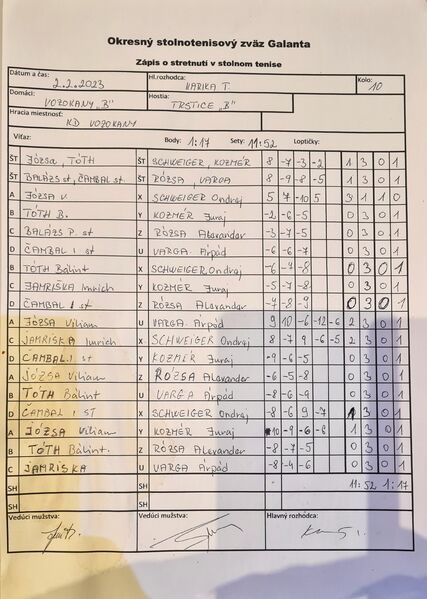 Okresný stolnotenisový zväz Galanta
Zápis o stretnutí v stolnom tenise
Dátum a čas: 2.2.2023 Hl.rozhodca: VARIKA T. Kolo: 10
Domáci: VOZOKANY „B" Hostia: TRSTICE „B"
Hracia miestnosť: KD VOZOKANY
Víťaz: Body: 1:17 Sety: 11:52 Loptičky:
ŠT JÓZSA, TÓTH ŠT SCHWEIGER, KOZMÉR 8 -7 -3 -2 1 3 0 1
ŠT BALÁZS st, ČAMBAL st. ŠT RÓZSA, VARGA 8 -9 -8 -5 1 3 0 1
A JÓZSA V. X SCHWEIGER Ondrej 5 7 -10 5 3 1 1 0
B TÓTH B. Y KOZMÉR Juraj -2 -6 -5 0 3 0 1
C BALÁZS P. st Z RÓZSA Alexander -3 -7 -5 0 3 0 1
D ČAMBAL I st U VARGA Árpád -6 -6 -7 0 3 0 1
B TÓTH Bálint X SCHWEIGER Ondrej -6 -7 -8 0 3 0 1
C JAMRIŠKA Imrich Y KOZMÉR Juraj -5 -7 -8 0 3 0 1
D ČAMBAL I st Z RÓZSA Alexander -7 -8 -9 0 3 0 1
A JÓZSA Viliam U VARGA Árpád 9 10 -6 -12 -6 2 3 0 1
C JAMRIŠKA Imrich X SCHWEIGER Ondrej 8 -7 9 -6 -5 2 3 0 1
D ČAMBAL I st Y KOZMÉR Juraj -9 -6 -5 0 3 0 1
A JÓZSA Viliam Z RÓZSA Alexander -6 -5 -8 0 3 0 1
B TÓTH Bálint U VARGA Árpád -8 -6 -9 0 3 0 1
D ČAMBAL I ST X SCHWEIGER Ondrej -8 -6 9 -7 1 3 0 1
A JÓZSA Viliam Y KOZMÉR Juraj 10 -9 -6 -8 1 3 0 1
B TÓTH Bálint. Z RÓZSA Alexander -8 -7 -5 0 3 0 1
C JAMRIŠKA U VARGA Árpád -8 -4 -6 0 3 0 1
SH SH 11:52 1:17
SH SH
Vedúci mužstva: Vedúci mužstva: Hlavný rozhodca: